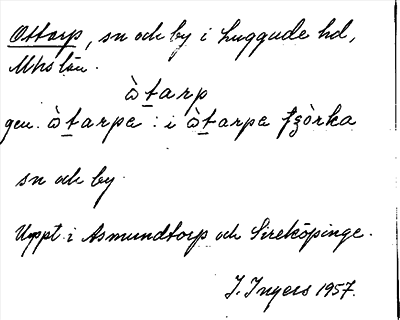 Ottarp, sn och by i Luggude hd,
Mhs län.
òtarp
gen. òtarpe : i òtarpe
sn och by
Uppt. i Asmundtorp och Sireköpinge.
I. Ingers 1957.